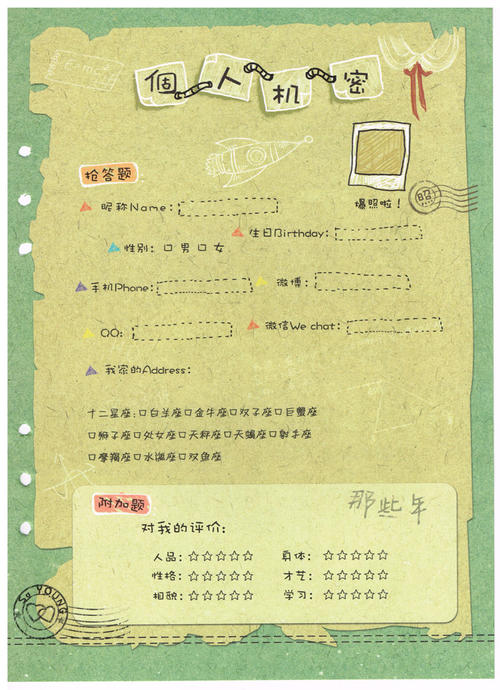 個人机密
抢答题
昵称Name:
爆照啦!
照
生日Birthday:
性别: □男 □女
手机Phone:
微博:
QQ:
微信We chat:
我家的Address:
十二星座:□白羊座□金牛座□双子座□巨蟹座
□狮子座□处女座□天秤座□天蝎座□射手座
□摩羯座□水瓶座□双鱼座
附加题
那些年
对我的评价:
人品:☆☆☆☆☆ 身体:☆☆☆☆☆
性格:☆☆☆☆☆ 才艺:☆☆☆☆☆
相貌:☆☆☆☆☆ 学习:☆☆☆☆☆
So YOUNG